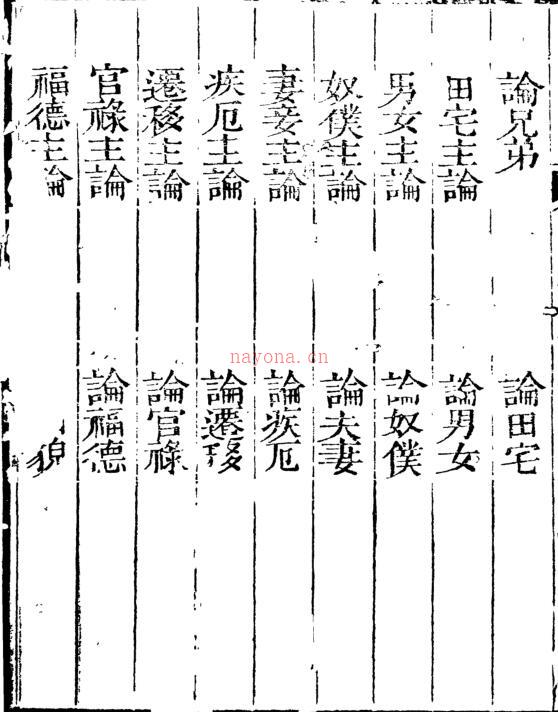 論兄弟 論田宅
田宅主論 論男女
男女主論 論奴僕
奴僕主論 論夫妻
妻妾主論 論疾厄
疾厄主論 論遷移
遷移主論 論官祿
官祿主論 論福德
福德主論
nayona.cn